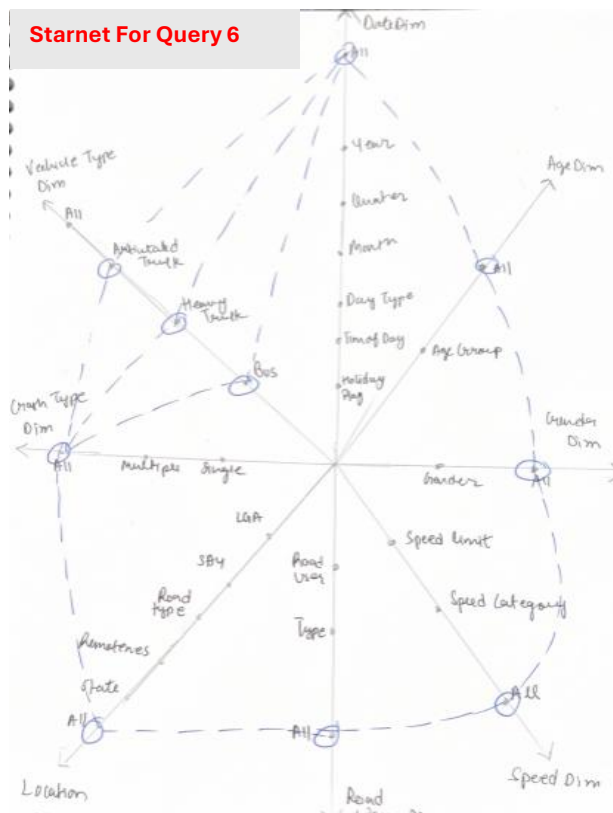 Starnet For Query 6
DateDim
All
Year
Quater
Month
Day Type
Tim of Day
Holiday
Flag
Vehicle Type
Dim
All
Articulated
Truck
Heavy
Truck
Bus
AgeDim
All
Age Group
Crash Type
Dim
All
Multiple
Single
Gender
Dim
Gander
All
LGA
SA4
Road
type
Remotenes
State
All
Location
Road
User
Type
All
Road
Speed limit
Speed Category
All
Speed Dim